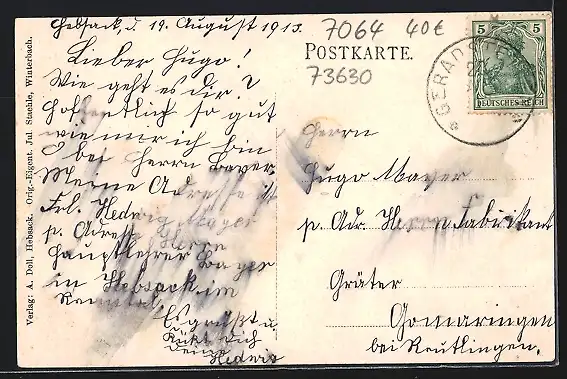 Hebsack, d. 19. August 1913.
Lieber Hugo!
Wie geht es dir?
Hoffentlich so gut
wie mir ich bin
bei Herrn Bayer.
Meine Adresse ist
Frl. Hedwig Mayer
p. Adresse Herrn
Hauptlehrer Bayer
in Hebsack im
Remstal.
Es grüßt u.
küßt dich
Deine
Hedwig
7064 40€
POSTKARTE.
73630
5 5
DEUTSCHES REICH
GERADSTETTEN
Herrn
Hugo Mayer
p. Adr. Herrn Fabrikant
Gräter
Gomaringen
bei Reutlingen.
Verlag: A. Doll, Hebsack. Orig.-Eigent. Jul Staehle, Winterbach.